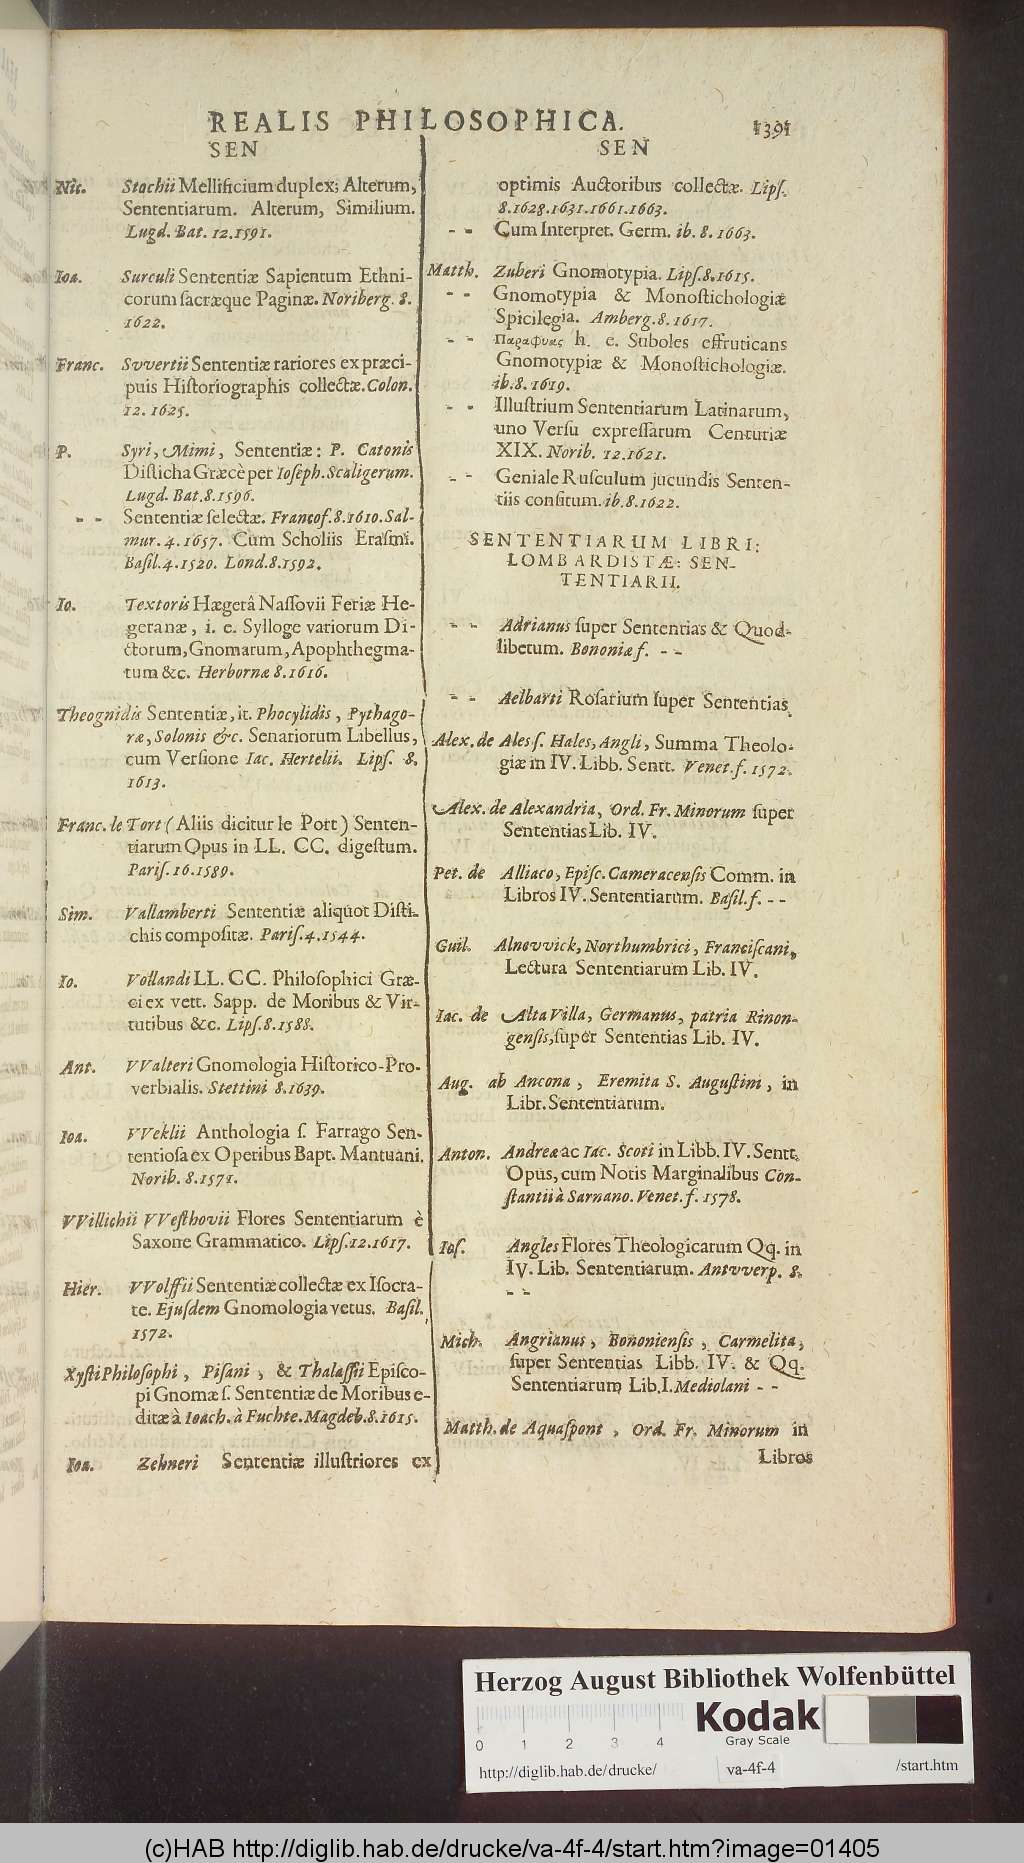 REALIS PHILOSOPHICA.
1391
SEN
Nic. Stochii Mellificium duplex; Alterum,
Sententiarum. Alterum, Similium.
Lugd. Bat. 12.1591.
Ioa. Surculi Sententiæ Sapientum Ethni-
corum sacræque Paginæ. Noriberg. 8.
1622.
Franc. Svvertii Sententiæ rariores ex præci-
puis Historiographis collectæ. Colon.
12. 1625.
P. Syri, Mimi, Sententiæ: P. Catonis
Disticha Græcè per Ioseph. Scaligerum.
Lugd. Bat. 8. 1596.
- - Sententiæ selectæ. Francof. 8. 1610. Sal-
mur. 4. 1657. Cum Scholiis Erasmi.
Basil. 4. 1520. Lond. 8. 1592.
Io. Textoris Hægerâ Nassovii Feriæ He-
geranæ, i. e. Sylloge variorum Di-
ctorum, Gnomarum, Apophthegma-
tum &c. Herbornæ 8. 1616.
Theognidis Sententiæ, it. Phocylidis, Pythago-
ræ, Solonis &c. Senariorum Libellus,
cum Versione Iac. Hertelii. Lips. 8.
1613.
Franc. le Tort (Aliis dicitur le Port) Senten-
tiarum Opus in LL. CC. digestum.
Paris. 16. 1589.
Sim. Vallamberti Sententiæ aliquot Disti-
chis compositæ. Paris. 4. 1544.
Io. Vollandi LL. CC. Philosophici Græ-
ci ex vett. Sapp. de Moribus & Vir-
tutibus &c. Lips. 8. 1588.
Ant. VValteri Gnomologia Historico-Pro-
verbialis. Stettini 8. 1639.
Ioa. VVeklii Anthologia s. Farrago Sen-
tentiosa ex Operibus Bapt. Mantuani.
Norib. 8. 1571.
VVillichii VVesthovii Flores Sententiarum è
Saxone Grammatico. Lips. 12. 1617.
Hier. VVolffii Sententiæ collectæ ex Isocra-
te. Ejusdem Gnomologia vetus. Basil.
1572.
Xysti Philosophi, Pisani, & Thalassii Episco-
pi Gnomæ s. Sententiæ de Moribus e-
ditæ à Ioach. à Fuchte. Magdeb. 8. 1615.
Ioa. Zehneri Sententiæ illustriores ex
SEN
optimis Auctoribus collectæ. Lips.
8. 1628. 1631. 1661. 1663.
- - Cum Interpret. Germ. ib. 8. 1663.
Matth. Zuberi Gnomotypia. Lips. 8. 1615.
- - Gnomotypia & Monostichologiæ
Spicilegia. Amberg. 8. 1617.
- - Παραφυας h. e. Suboles effruticans
Gnomotypiæ & Monostichologiæ.
ib. 8. 1619.
- - Illustrium Sententiarum Latinarum,
uno Versu expressarum Centuriæ
XIX. Norib. 12. 1621.
- - Geniale Rusculum jucundis Senten-
tiis consitum. ib. 8. 1622.
SENTENTIARUM LIBRI:
LOMBARDISTÆ: SEN-
TENTIARII.
- - Adrianus super Sententias & Quod-
libetum. Bononiæ f. - -
- - Aelbarti Rosarium super Sententias
Alex. de Ales s. Hales, Angli, Summa Theolo-
giæ in IV. Libb. Sentt. Venet. f. 1572.
Alex. de Alexandria, Ord. Fr. Minorum super
Sententias Lib. IV.
Pet. de Alliaco, Episc. Cameracensis Comm. in
Libros IV. Sententiarum. Basil. f. - -
Guil. Alnovvick, Northumbrici, Franciscani,
Lectura Sententiarum Lib. IV.
Iac. de Alta Villa, Germanus, patria Rinon-
gensis, super Sententias Lib. IV.
Aug. ab Ancona, Eremita S. Augustini, in
Libr. Sententiarum.
Anton. Andreæ ac Iac. Scoti in Libb. IV. Sentt.
Opus, cum Notis Marginalibus Con-
stantii à Sarnano. Venet. f. 1578.
Ios. Angles Flores Theologicarum Qq. in
IV. Lib. Sententiarum. Antvverp. 8.
- -
Mich. Angrianus, Bononiensis, Carmelita,
super Sententias Libb. IV. & Qq.
Sententiarum Lib. I. Mediolani - -
Matth. de Aquaspont, Ord. Fr. Minorum in
Libros
Herzog August Bibliothek Wolfenbüttel
Kodak
Gray Scale
0 1 2 3 4
http://diglib.hab.de/drucke/ va-4f-4 /start.htm
(c)HAB http://diglib.hab.de/drucke/va-4f-4/start.htm?image=01405